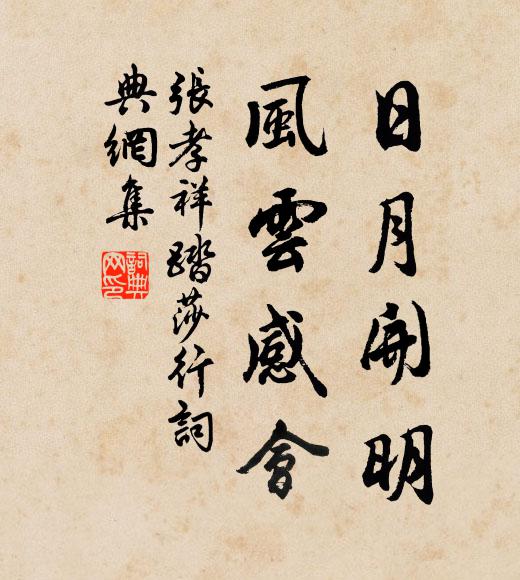 日月開明
風雲感會
張孝祥踏莎行詞
典網集
詞典
网印